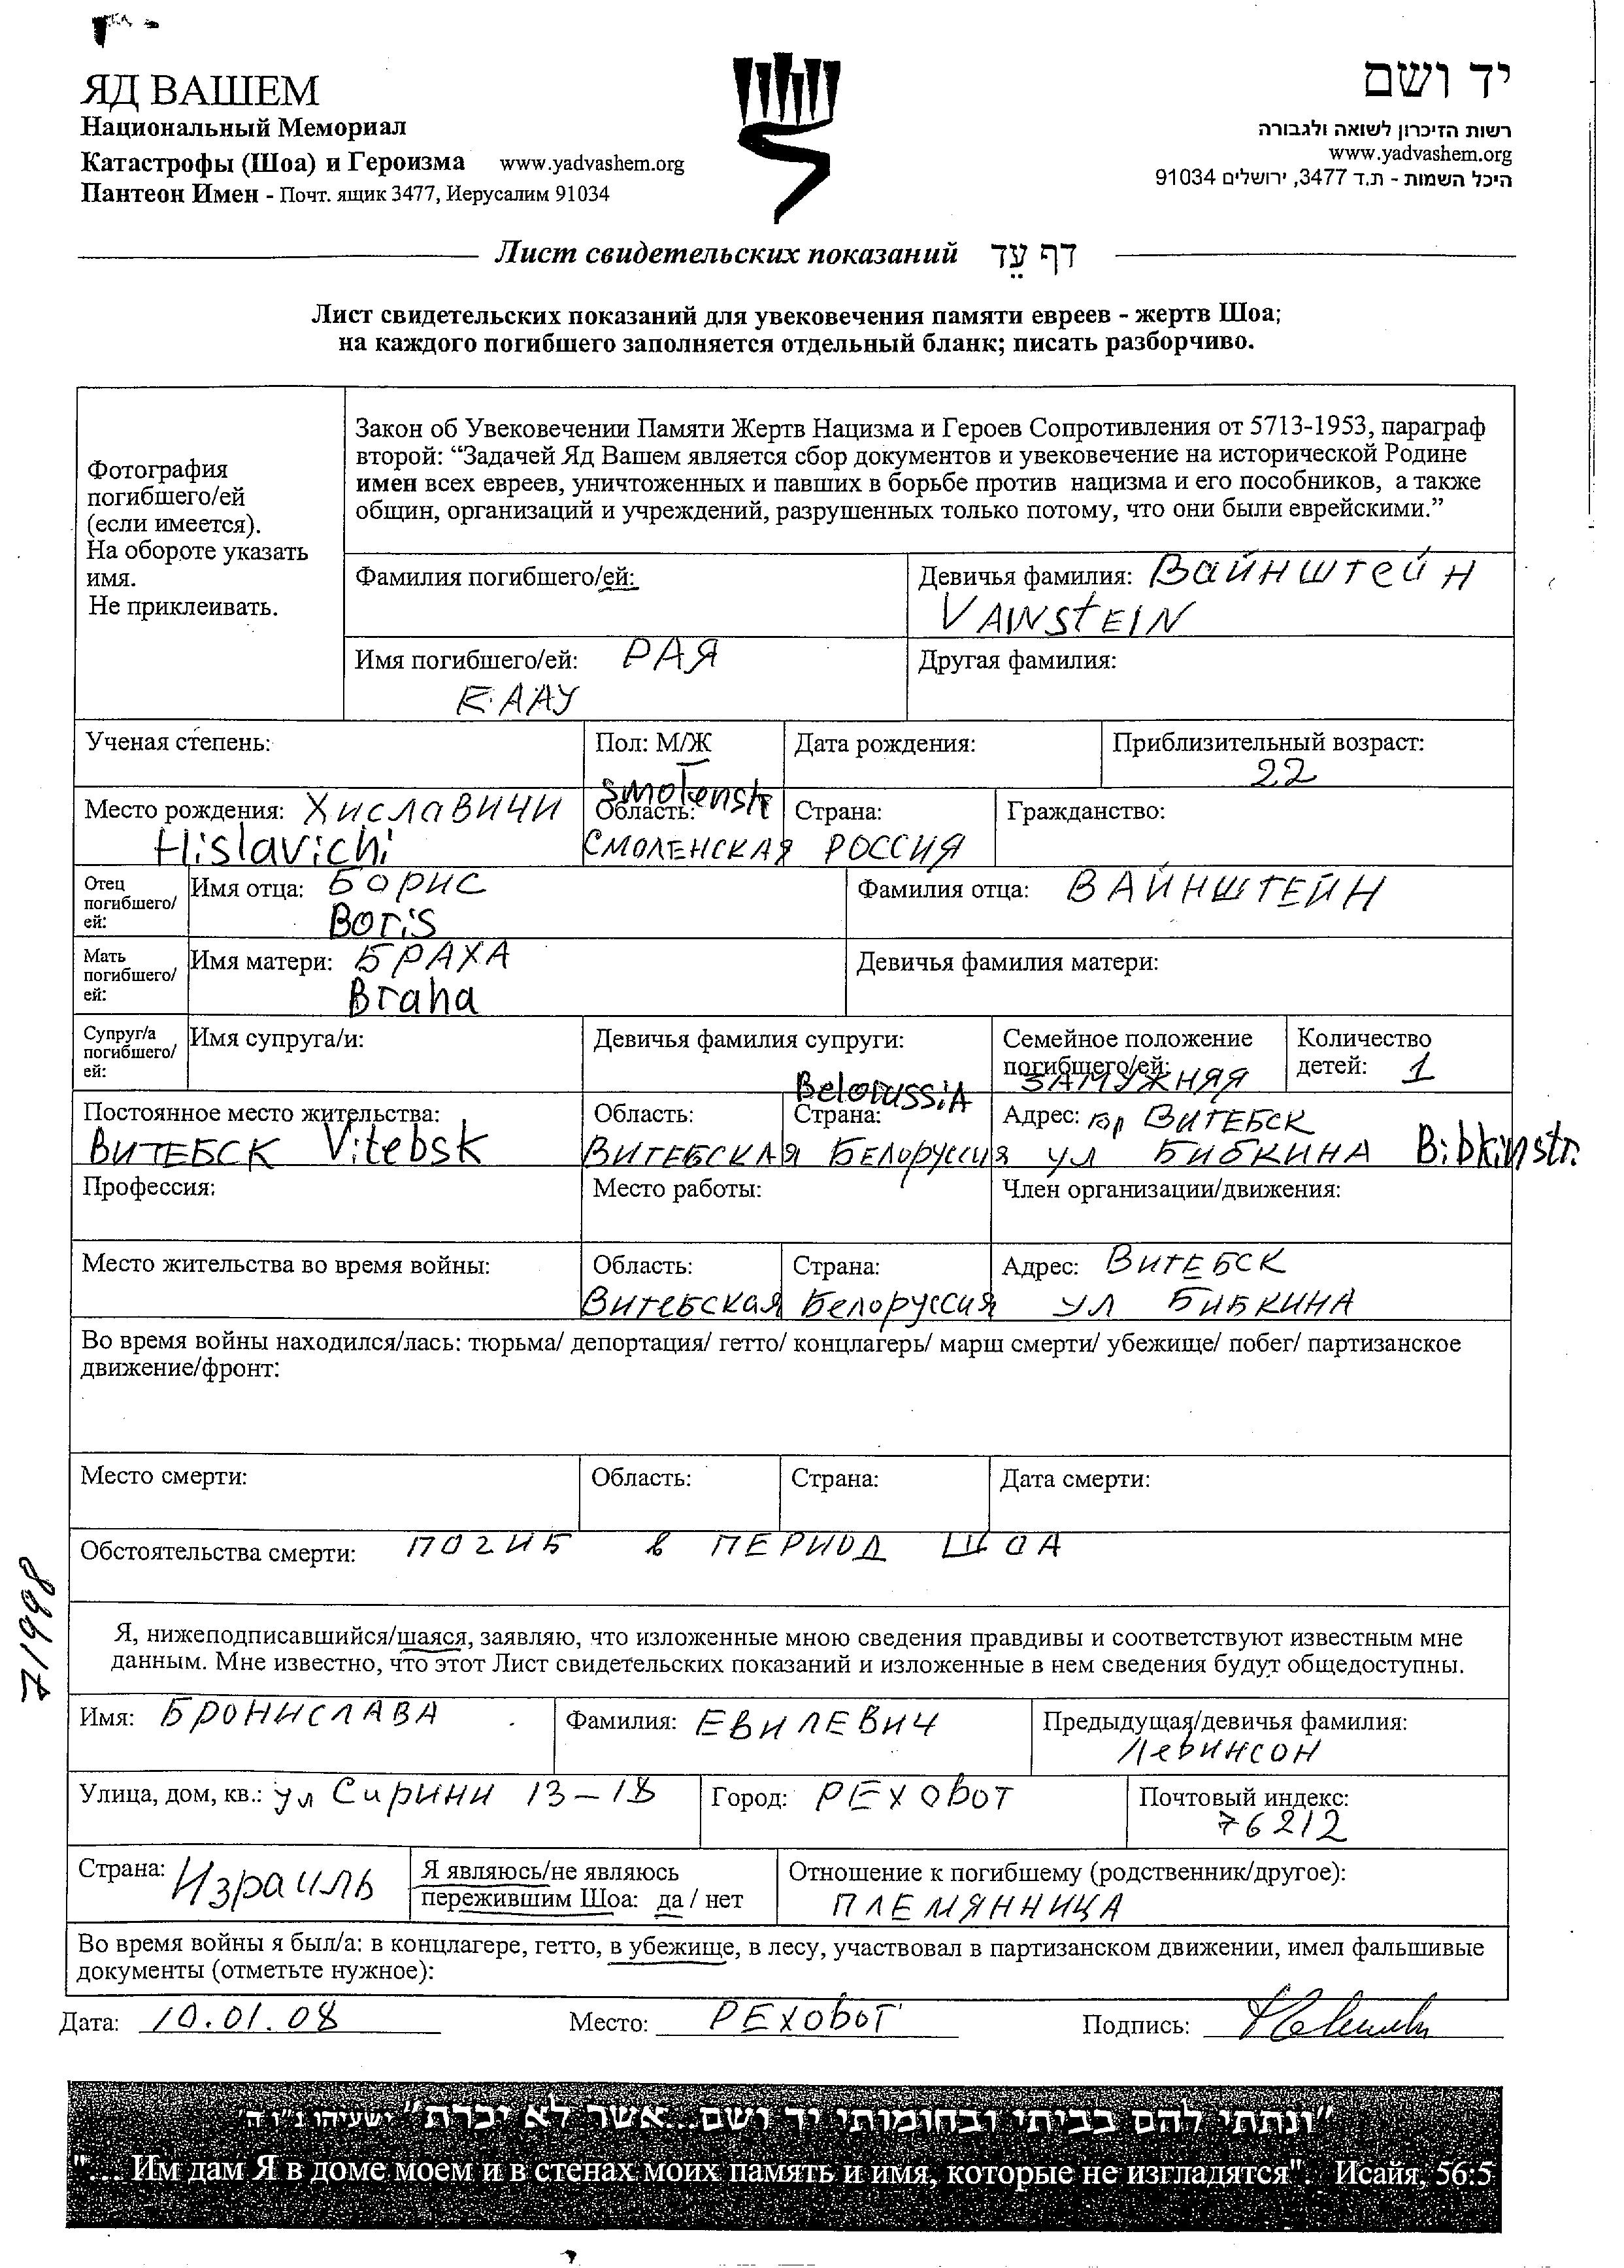 ЯД ВАШЕМ
Национальный Мемориал
Катастрофы (Шоа) и Героизма www.yadvashem.org
Пантеон Имен - Почт. ящик 3477, Иерусалим 91034
יד ושם
רשות הזיכרון לשואה ולגבורה
www.yadvashem.org
היכל השמות - ת.ד 3477, ירושלים 91034
Лист свидетельских показаний דף עֵד
Лист свидетельских показаний для увековечения памяти евреев - жертв Шоа;
на каждого погибшего заполняется отдельный бланк; писать разборчиво.
Фотография
погибшего/ей
(если имеется).
На обороте указать
имя.
Не приклеивать.
Закон об Увековечении Памяти Жертв Нацизма и Героев Сопротивления от 5713-1953, параграф
второй: “Задачей Яд Вашем является сбор документов и увековечение на исторической Родине
имен всех евреев, уничтоженных и павших в борьбе против нацизма и его пособников, а также
общин, организаций и учреждений, разрушенных только потому, что они были еврейскими.”
Фамилия погибшего/ей:
Девичья фамилия: Вайнштейн
VAINSTEIN
Имя погибшего/ей: РАЯ
Другая фамилия:
Ученая степень:
Пол: М/Ж
Дата рождения:
Приблизительный возраст:
22
Место рождения: ХИСЛАВИЧИ
Hislavichi
Smolensk
Область:
СМОЛЕНСКАЯ
Страна:
РОССИЯ
Гражданство:
Отец
погибшего/
ей:
Имя отца: БОРИС
Boris
Фамилия отца: ВАЙНШТЕЙН
Мать
погибшего/
ей:
Имя матери: БРАХА
Braha
Девичья фамилия матери:
Супруг/а
погибшего/
ей:
Имя супруга/и:
Девичья фамилия супруги:
Семейное положение
погибшего/ей:
ЗАМУЖНЯЯ
Количество
детей: 1
Постоянное место жительства:
ВИТЕБСК Vitebsk
Область:
ВИТЕБСКАЯ
Belorussia
Страна:
БЕЛОРУССИЯ
Адрес: гор ВИТЕБСК
ул БИБКИНА Bibkin str.
Профессия:
Место работы:
Член организации/движения:
Место жительства во время войны:
Область:
Витебская
Страна:
Белоруссия
Адрес: ВИТЕБСК
ул БИБКИНА
Во время войны находился/лась: тюрьма/ депортация/ гетто/ концлагерь/ марш смерти/ убежище/ побег/ партизанское
движение/фронт:
Место смерти:
Область:
Страна:
Дата смерти:
Обстоятельства смерти: ПОГИБ в ПЕРИОД ШОА
71998
Я, нижеподписавшийся/шаяся, заявляю, что изложенные мною сведения правдивы и соответствуют известным мне
данным. Мне известно, что этот Лист свидетельских показаний и изложенные в нем сведения будут общедоступны.
Имя: БРОНИСЛАВА
Фамилия: ЕВИЛЕВИЧ
Предыдущая/девичья фамилия:
Левинсон
Улица, дом, кв.: ул Сирини 13-18
Город: РЕХОВОТ
Почтовый индекс:
76212
Страна: Израиль
Я являюсь/не являюсь
пережившим Шоа: да / нет
Отношение к погибшему (родственник/другое):
ПЛЕМЯННИЦА
Во время войны я был/а: в концлагере, гетто, в убежище, в лесу, участвовал в партизанском движении, имел фальшивые
документы (отметьте нужное):
Дата: 10.01.08
Место: РЕХОВОТ
Подпись:
"ונתתי להם בביתי ובחומותי יד ושם...אשר לא יכרת" ישעיהו נ"ו ה'
"... Им дам Я в доме моем и в стенах моих память и имя, которые не изгладятся". Исайя, 56:5